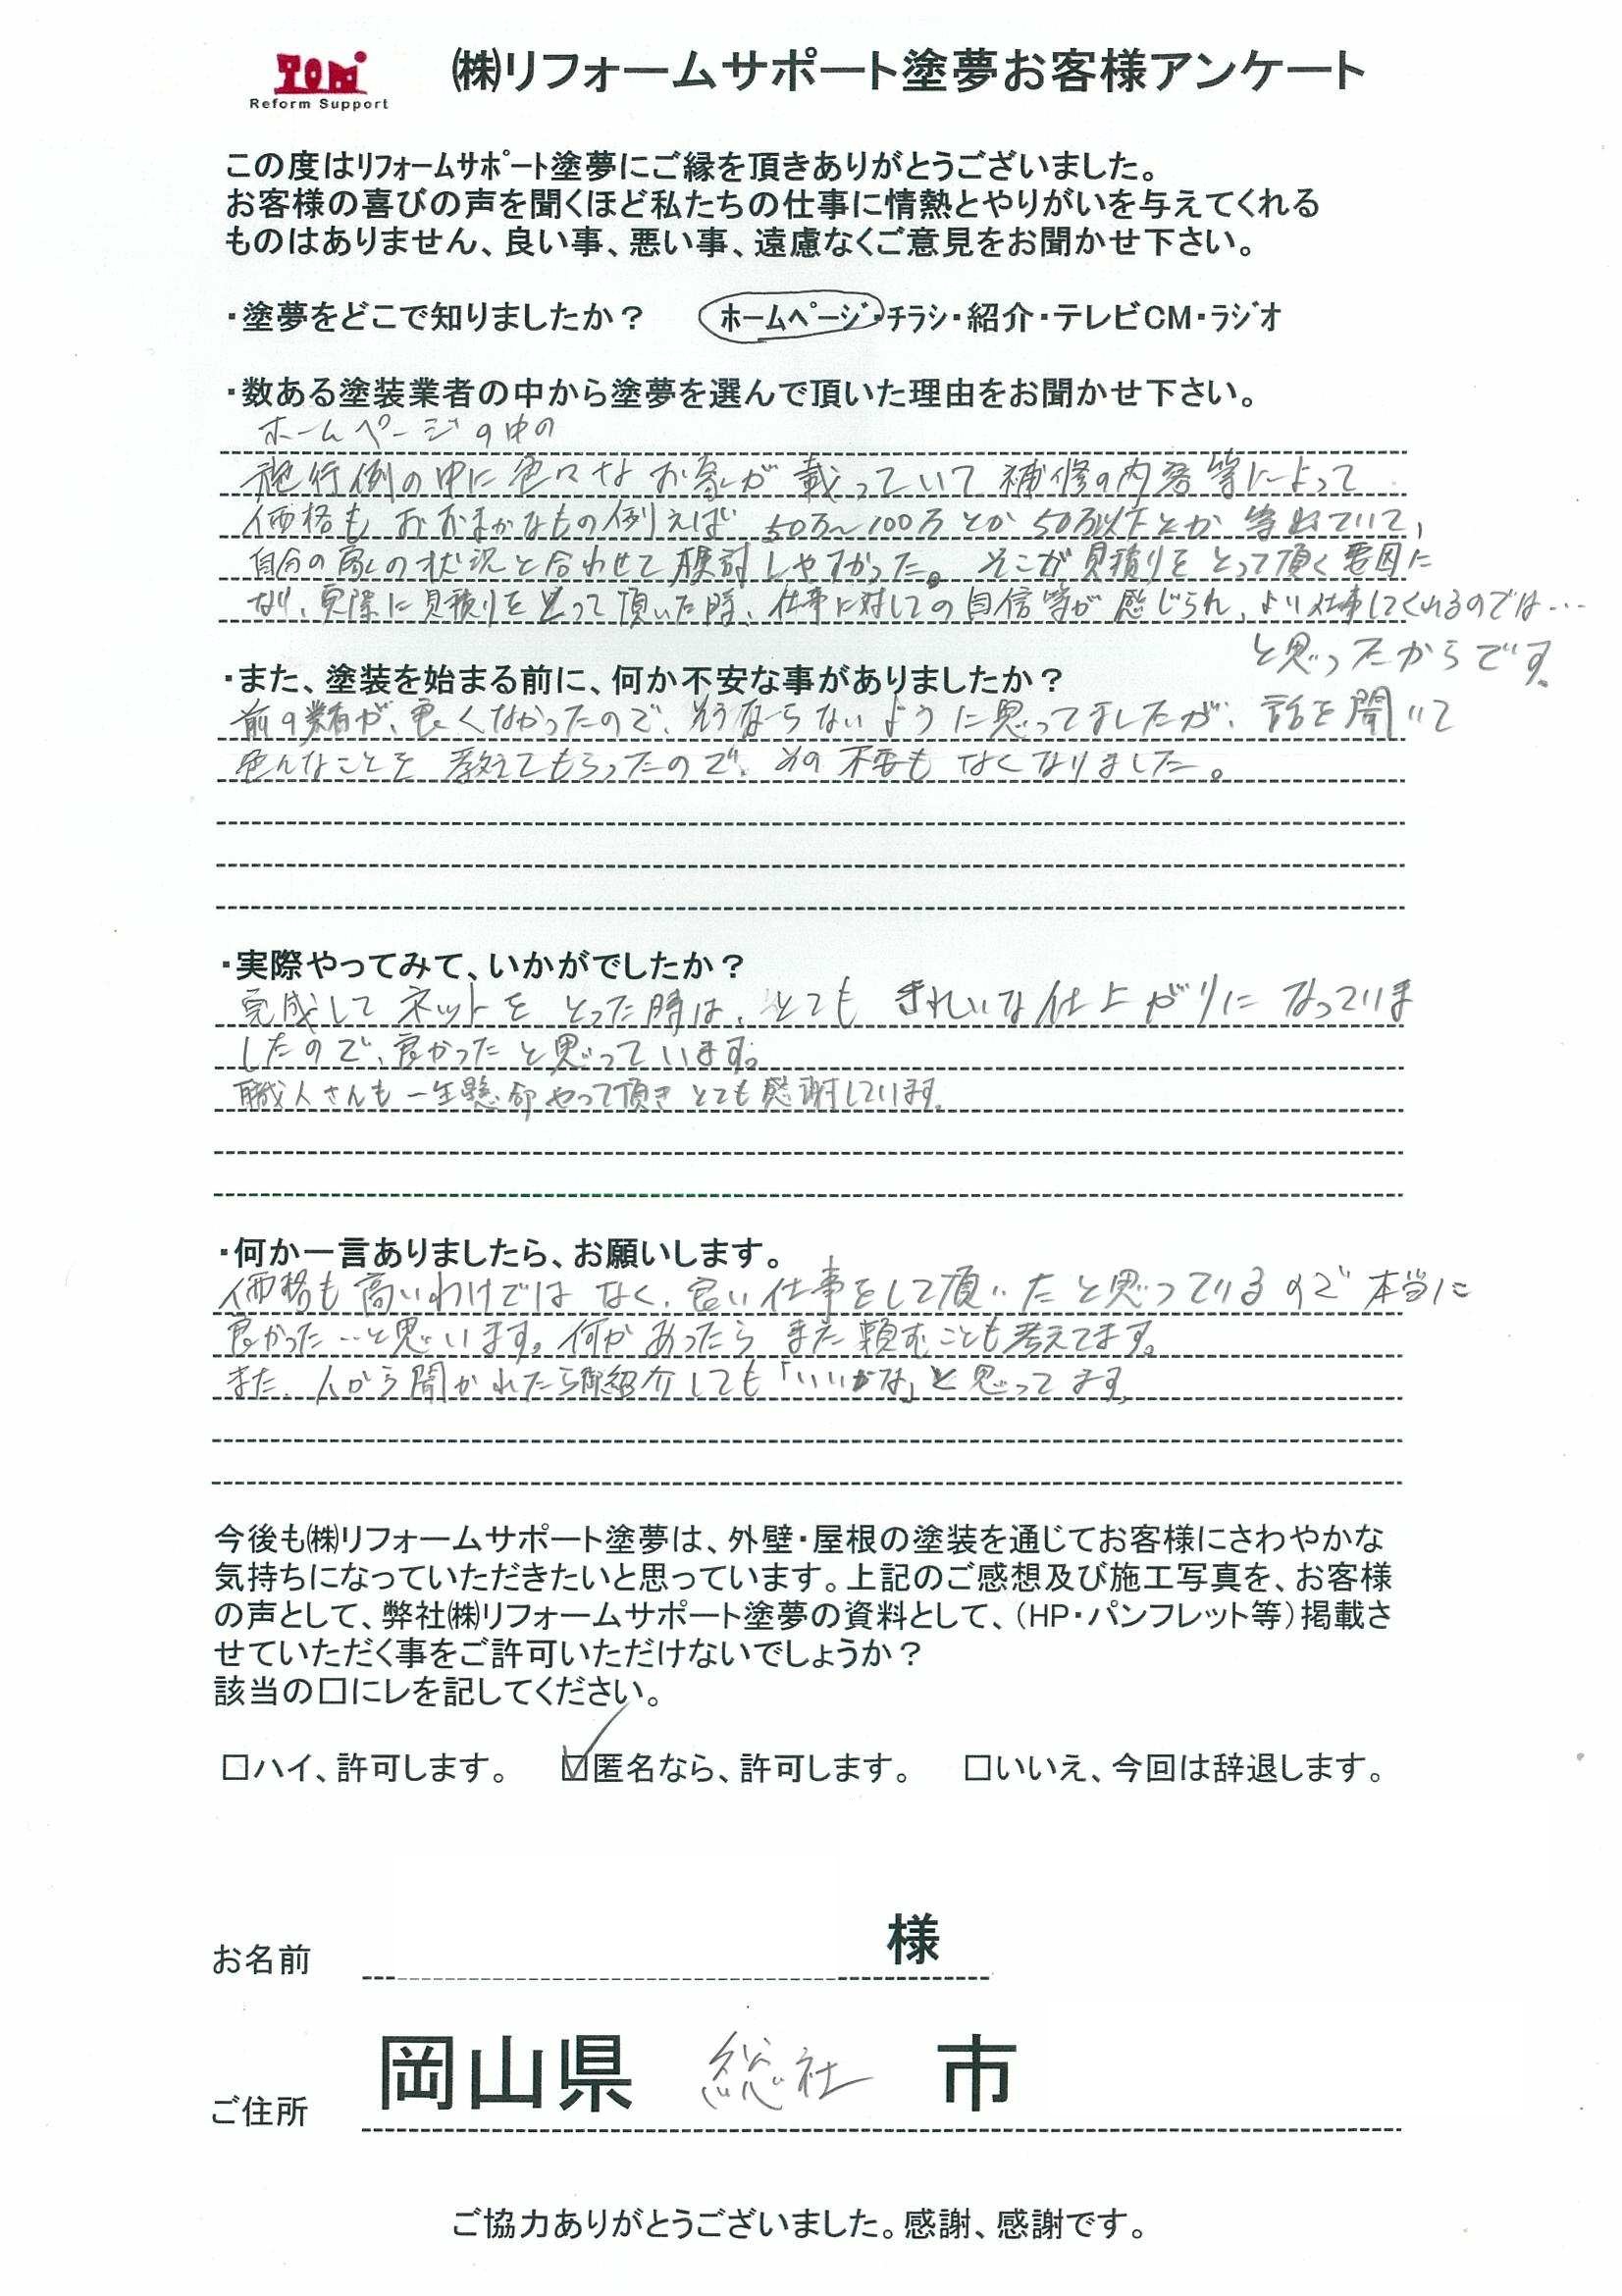 TOM
Reform Support
㈱リフォームサポート塗夢お客様アンケート
この度はリフォームサポート塗夢にご縁を頂きありがとうございました。
お客様の喜びの声を聞くほど私たちの仕事に情熱とやりがいを与えてくれる
ものはありません、良い事、悪い事、遠慮なくご意見をお聞かせ下さい。
・塗夢をどこで知りましたか？ ホームページ・チラシ・紹介・テレビCM・ラジオ
・数ある塗装業者の中から塗夢を選んで頂いた理由をお聞かせ下さい。
ホームページの中の
施行例の中に色々なお家が載っていて補修の内容等によって
価格もおおまかなもの例えば50万～100万とか50万以下とか等出ていて、
自分の家の状況と合わせて検討しやすかった。そこが見積りをとって頂く要因に
なり、実際に見積りをとって頂いた時、仕事に対しての自信等が感じられ、より仕事してくれるのでは…
と思ったからです。
・また、塗装を始まる前に、何か不安な事がありましたか？
前の業者が、良くなかったので、そうならないように思ってましたが、話を聞いて
色んなことを教えてもらったので、その不安もなくなりました。
・実際やってみて、いかがでしたか？
完成してネットをとった時は、とてもきれいな仕上がりになっていま
したので、良かったと思っています。
職人さんも一生懸命やって頂きとても感謝しています。
・何か一言ありましたら、お願いします。
価格も高いわけではなく、良い仕事をして頂いたと思っているので本当に
良かった…と思います。何かあったらまた頼むことも考えてます。
また、人から聞かれたら御紹介しても「いいかな」と思ってます。
今後も㈱リフォームサポート塗夢は、外壁・屋根の塗装を通じてお客様にさわやかな
気持ちになっていただきたいと思っています。上記のご感想及び施工写真を、お客様
の声として、弊社㈱リフォームサポート塗夢の資料として、（HP・パンフレット等）掲載さ
せていただく事をご許可いただけないでしょうか？
該当の□にレを記してください。
□ハイ、許可します。 ☑匿名なら、許可します。 □いいえ、今回は辞退します。
お名前 様
ご住所 岡山県 総社 市
ご協力ありがとうございました。感謝、感謝です。